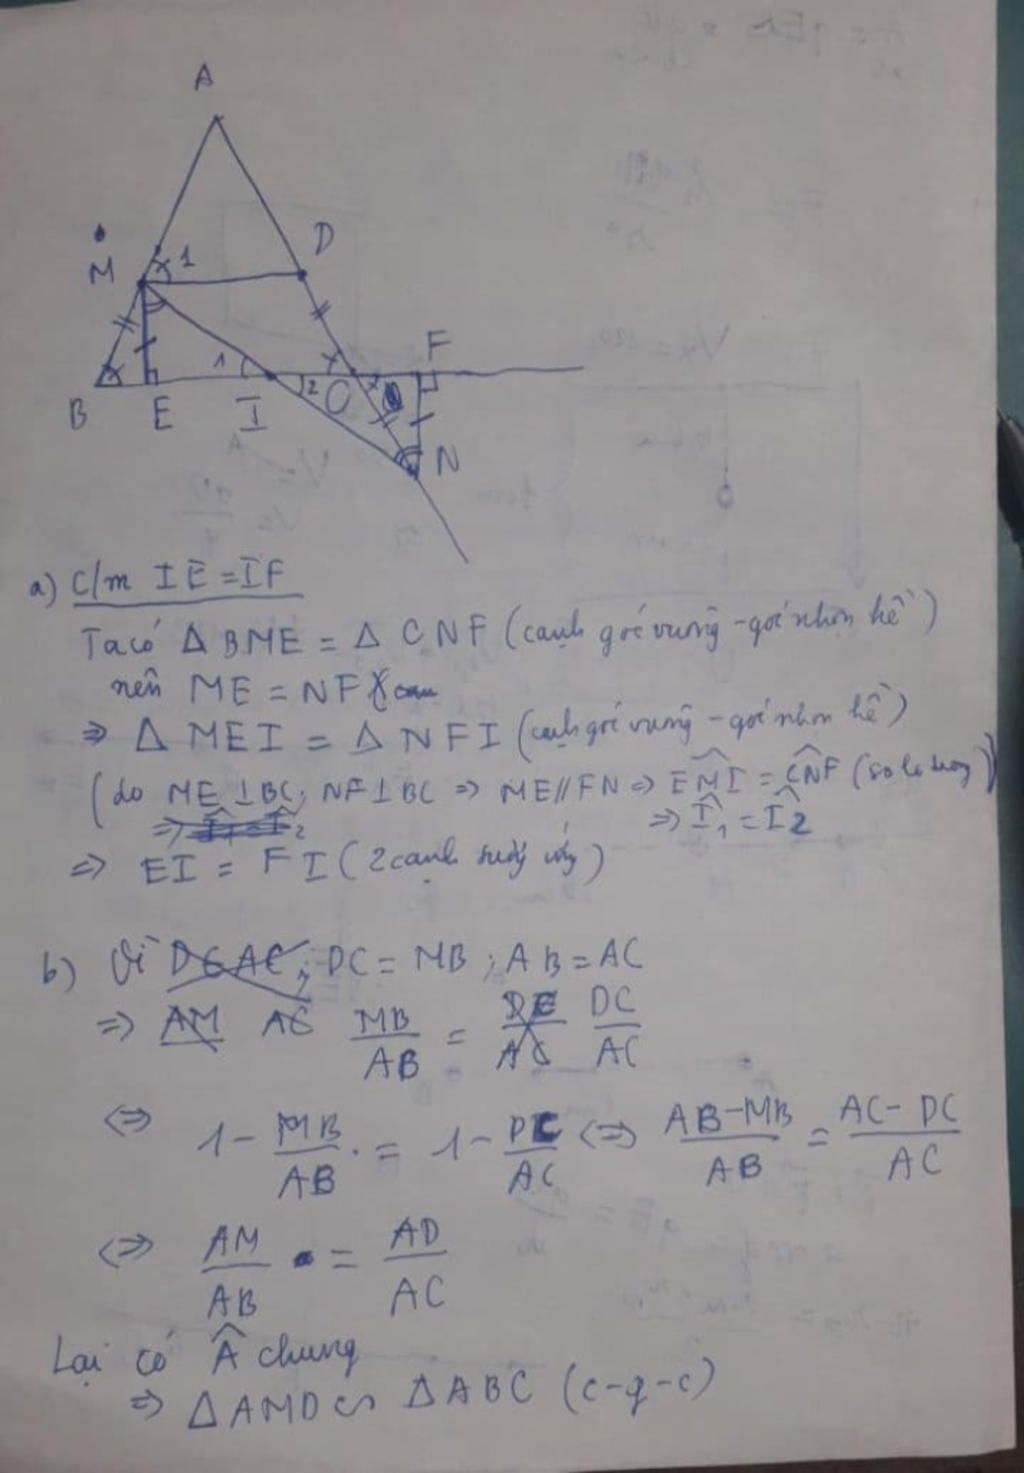 A
M
1
D
F
1
2
B
E
I
C
N
a) C/m IE = IF
Ta có Δ BME = Δ CNF (cạnh góc vuông - góc nhọn kề)
nên ME = NF
⇒ Δ MEI = Δ NFI (cạnh góc vuông - góc nhọn kề)
(do ME ⊥ BC, NF ⊥ BC ⇒ ME // FN ⇒ EMI^ = CNF^ (so le trong))
⇒ I^1 = I^2 ⇒ I^1 = I^2
⇒ EI = FI (2 cạnh tương ứng)
b) Vì DC = MB ; AB = AC
⇒ MB/AB = DC/AC
⇔ 1 - MB/AB = 1 - DC/AC ⇔ (AB - MB)/AB = (AC - DC)/AC
⇔ AM/AB = AD/AC
Lại có Â chung
⇒ Δ AMD ∽ Δ ABC (c-g-c)